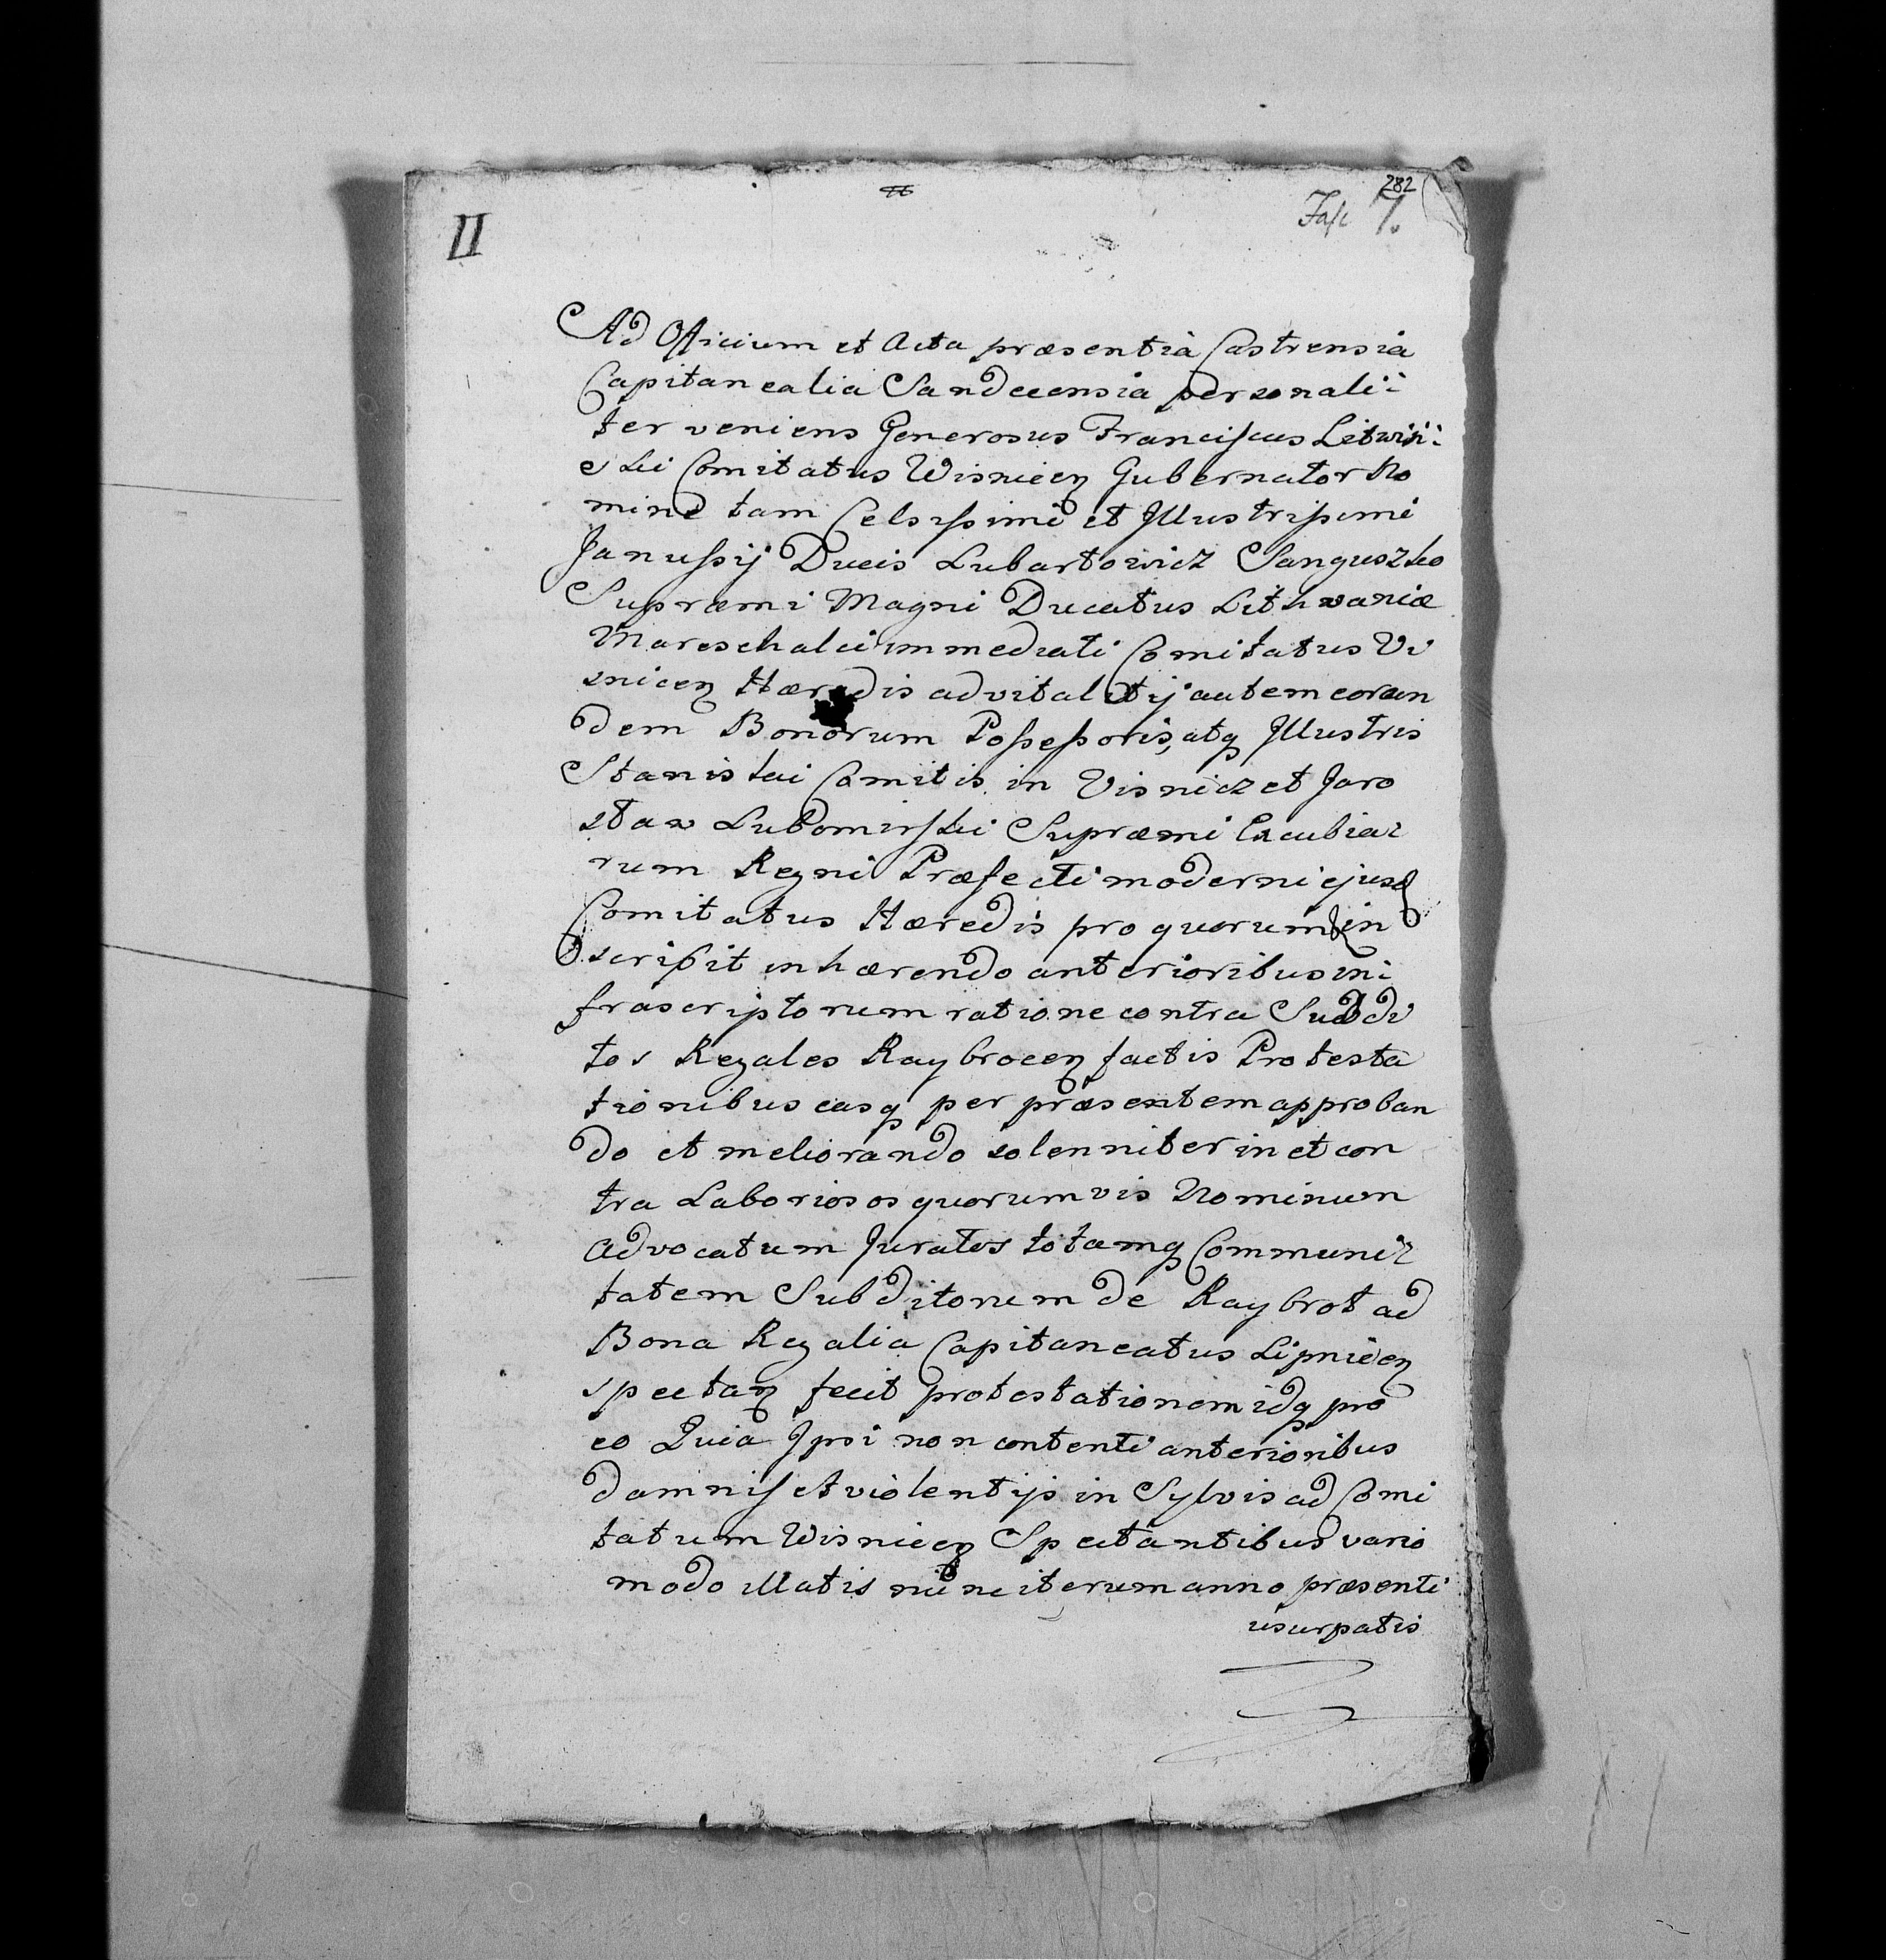 282
II
Fasc 7.
Ad Officium et Acta præsentia Castrensia
Capitanealia Sandecensia personali:
ter veniens Generosus Franciscus Litwin:
ski Comitatus Wisnicen Gubernator No
mine tam Celsissimi et Illustrissimi
Janussij Ducis Lubartowicz Sanguszko
Supræmi Magni Ducatus Lithvaniæ
Mareschalci immediati Comitatus Vi
snicen Hæredis advitalitij autem eoran
dem Bonorum Possessoris, atq Illustris
Stanislai Comitis in Visnicz et Jaro
staw Lubomirski Supræmi Excubiar
rum Regni Præfecti moderni ejusd
Comitatus Hæredis pro quorum in
scripit inhærendo anterioribus in:
frascriptorum ratione contra Subdi
tos Regales Raybrocen factis Protesta
tionibus easq per præsentem approban
do et meliorando solenniter in et con
tra Laboriosos quorumvis Nominum
Advocatum Juratos totamq Communi
tatem Subditorum de Raybrot ad
Bona Regalia Capitaneatus Lipnicen
spectan fecit protestationem idq pro
eo Quia Ipsi non contenti anterioribus
damnis et violentijs in Sylvis ad Comi
tatum Wisnicen Spectantibus vario
modo illatis nunc iterum anno præsenti
usurpatis